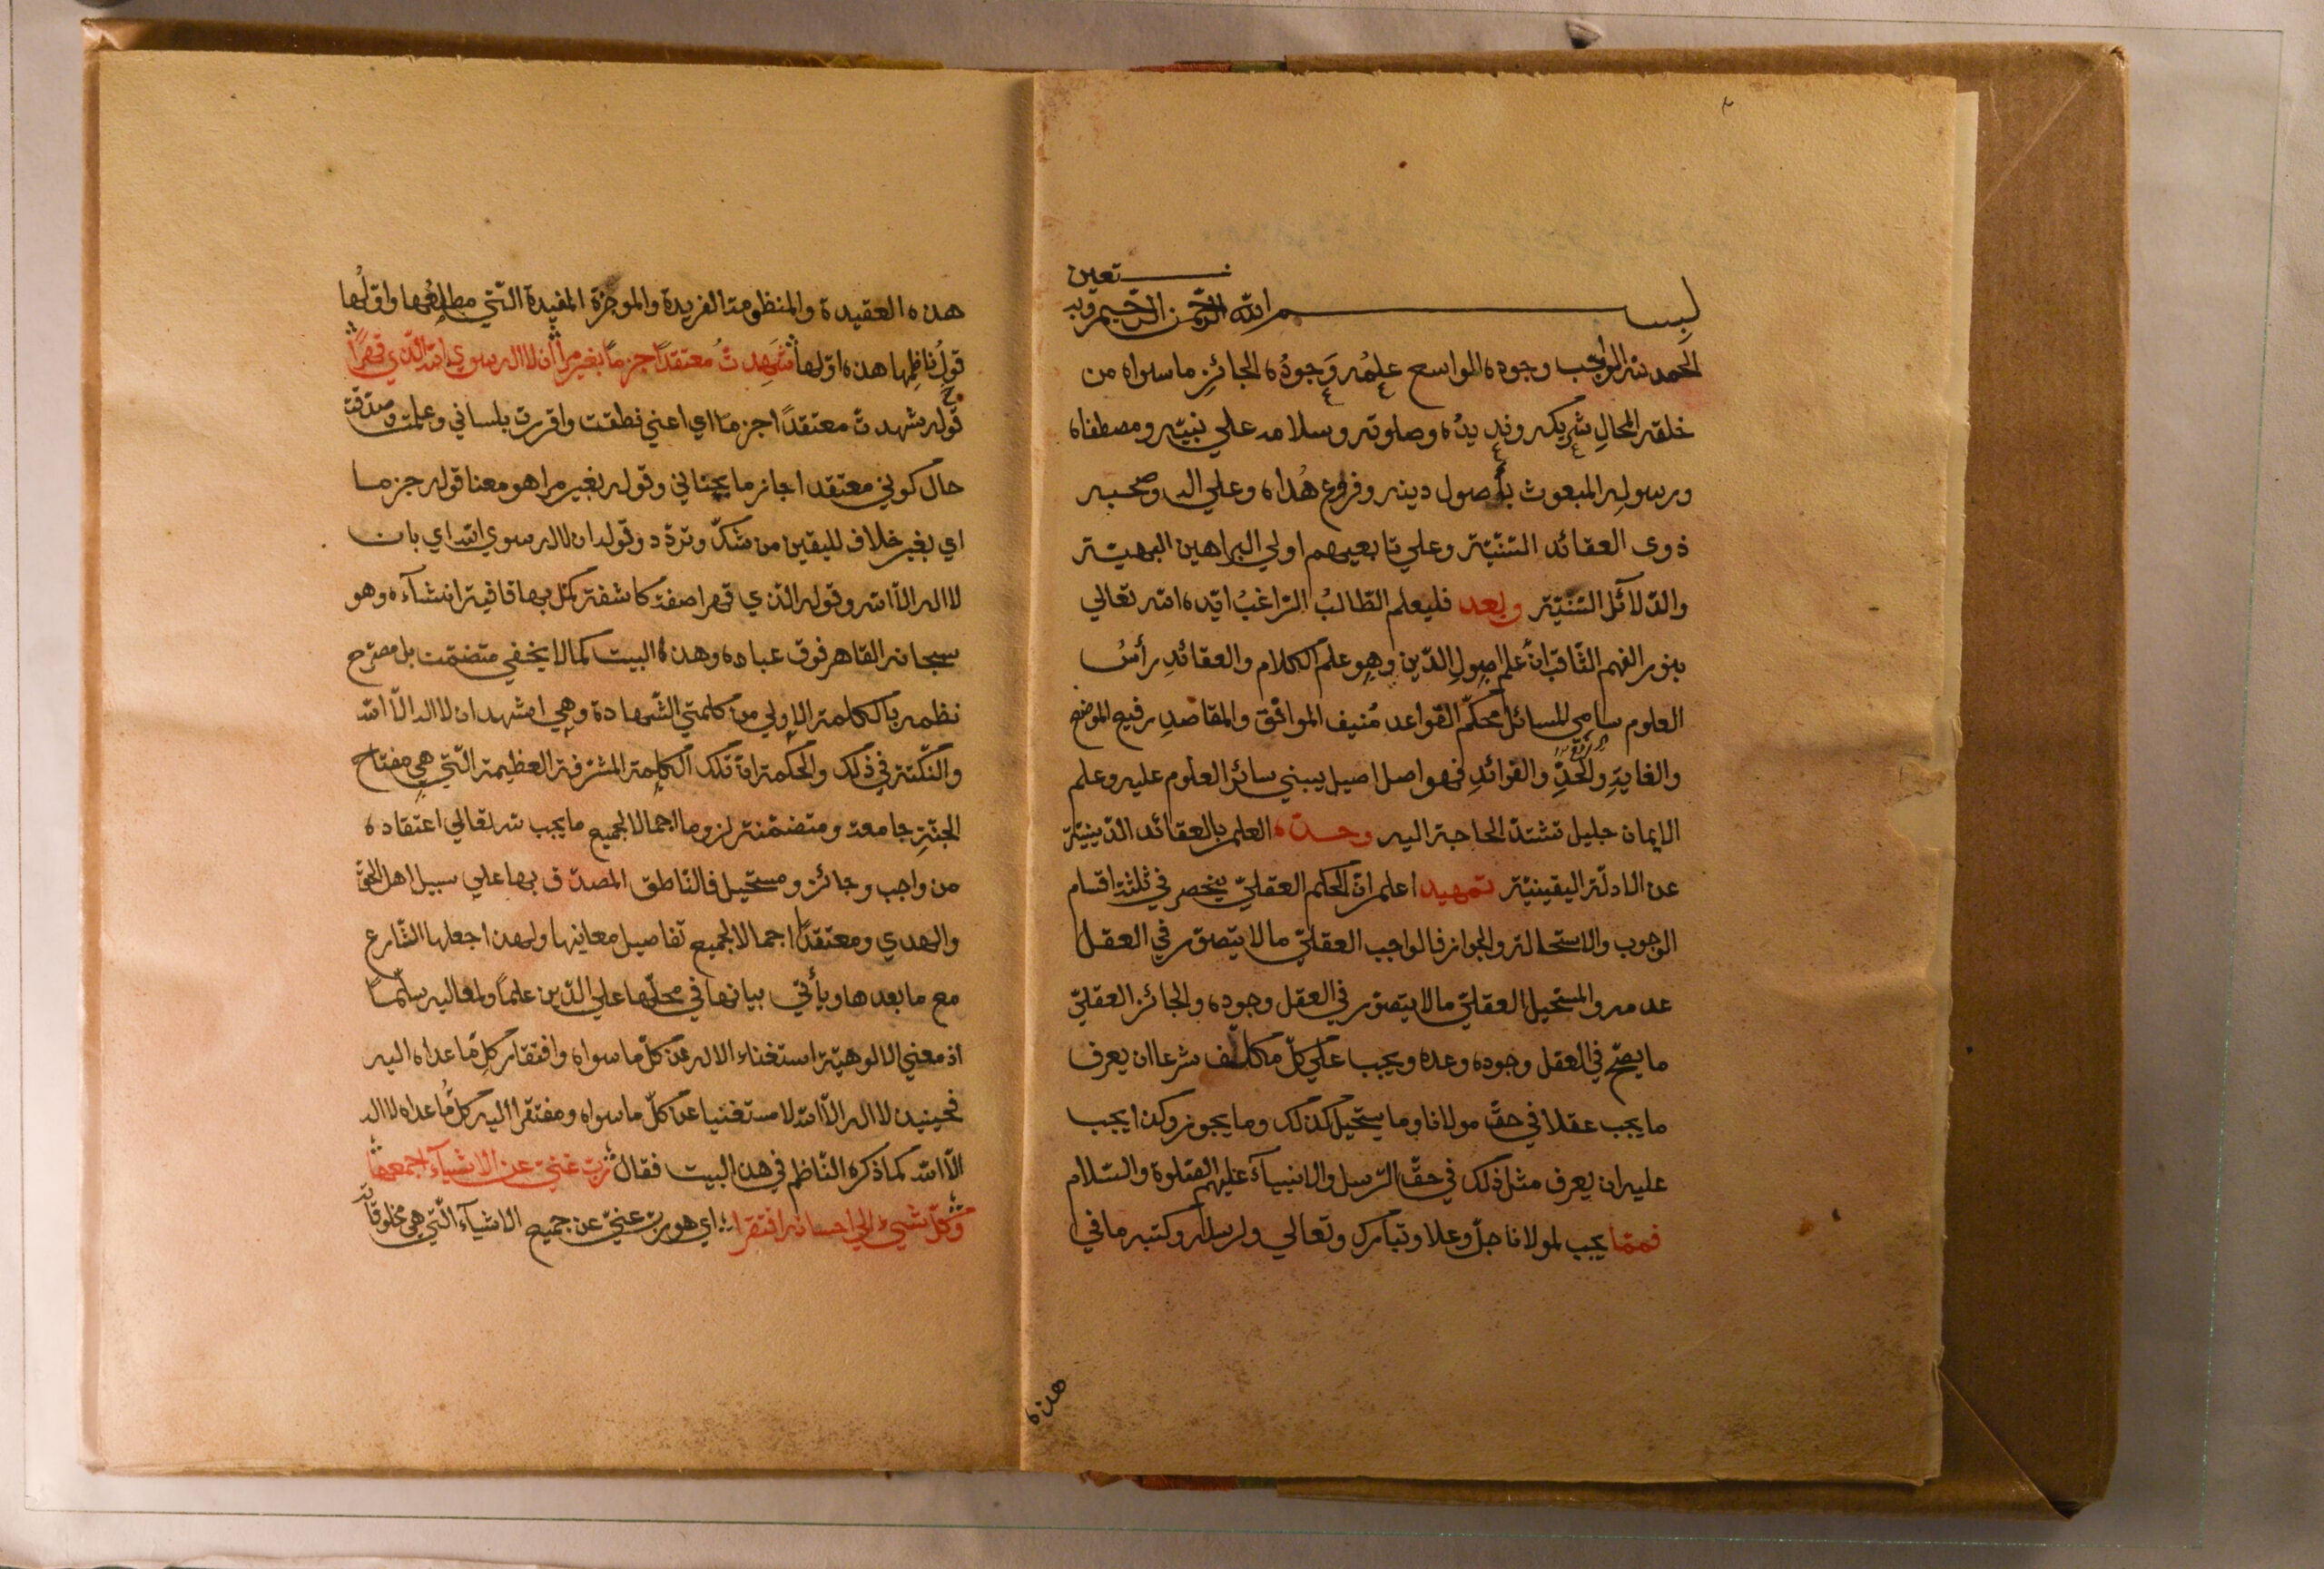 بسم الله الرحمن الرحيم وبه
نستعين
الحمد لله الواجب وجوده الواسع علمُه وَجودُه الجائزِ ما سواه من
خلقه المحالِ شريكه ونديدُه وصلوته وسلامه علي نبيّه ومصطفاه
ورسوله المبعوث بأصول دينه وفروع هُداه وعلي اله وصحبه
ذوى العقائد السّنيّة وعلي تابعيهم اولي البراهين البهيّة
والدّلائل السّنيّة وبعد فليعلم الطّالبُ الرّاغبُ ايّده الله تعالي
بنور الفهم الثّاقب انّ علم اصولِ الدّين وهو علم الكلام والعقائدِ رأسُ
العلوم سامي المسائل محكّم القواعد مُنيف المواقف والمقاصدِ رفيع الموضع
والغايةِ والحدِّ والفوائدِ فهو اصل اصيل يبني سائر العلوم عليه وعلم
الايمان جليل تشتدّ الحاجة اليه وحدّه العلم بالعقائد الدّينيّة
عن الادلّة اليقينيّة تمهيد اعلم انّ الحكم العقليّ ينحصر في ثلثة اقسام
الوجوب والاستحالة والجواز فالواجب العقليّ ما لا يتصوّر في العقل
عدمه والمستحيل العقليّ ما لا يتصوّر في العقل وجوده والجائز العقليّ
ما يصحّ في العقل وجوده وعدمه ويجب علي كلّ مكلّف شرعا ان يعرف
ما يجب عقلا في حقّ مولانا وما يستحيل كذلك وما يجوز وكذا يجب
عليه ان يعرف مثل ذلك في حقّ الرّسل والانبياء عليهم الصّلوة والسّلام
فممّا يجب لمولانا جلّ وعلا وتبارك وتعالي ولرسله وكتبه ما في
هذه
هذه العقيدة والمنظومة الفريدة والموجزة المفيدة الّتي مطلعها واوّلُها
قولُ ناظِمها هذه اوّلها شَهِدتُ معتقدًا جزمًا بغير مرا ان لا اله سوي الله الّذي قهرًا
قوله شهدت معتقدًا جزمّا اي اعني نطقت واقررت بلساني وعلمت وصدّقت
حال كوني معتقدا جازما بجناني وقوله بغير مرا هو معنا قوله جزما
اي بغير خلاف لليقين من شكّ وتردّد وقوله ان لا اله سوي الله اي بان
لا اله الّا الله وقوله الّذي قهرا صفة كاشفة كمّل بها قافية انشآءه وهو
سبحانه القاهر فوق عباده وهذه البيت كما لا يخفي متضمّن بل مصرّح
نظمه بالكلمة الاولي من كلمتي الشّهادة وهي اشهد ان لا اله الّا الله
والنّكتة في ذلك والحكمة انّ تلك الكلمة المشرّفة العظيمة الّتي هي مفتاح
الجنّةِ جامعة ومتضمّنة لزوما اجمالا لجميع ما يجب لله تعالي اعتقاده
من واجب وجائز ومستحيل فالنّاطق المصدّق بها علي سبيل اهل الحقّ
والهدي ومعتقدًا اجمالا لجميع تفاصيل معانيها ولهذا جعلها الشّارع
مع ما بعدها ويأتي بيانها في محلّها علي الدّين علمًا ولمعاليه سلّمًا
اذ معني الالوهيّة استغناء الاله عن كلّ ما سواه وافتقار كلِّ ما عداه اليه
فحينيذ لا اله الّا الله لا مستغنيا عن كلّ ما سواه ومفتقرا اليه كلّ ما عداه لا اله
الّا الله كما ذكره النّاظم في هذ البيت فقال ربّ غنيّ عن الاشيآء اجمعها
وكلّ شيئ الي احسانه افتقرا اي هو ربّ غنيّ عن جميع الاشيآء الّتي هي مخلوقاته